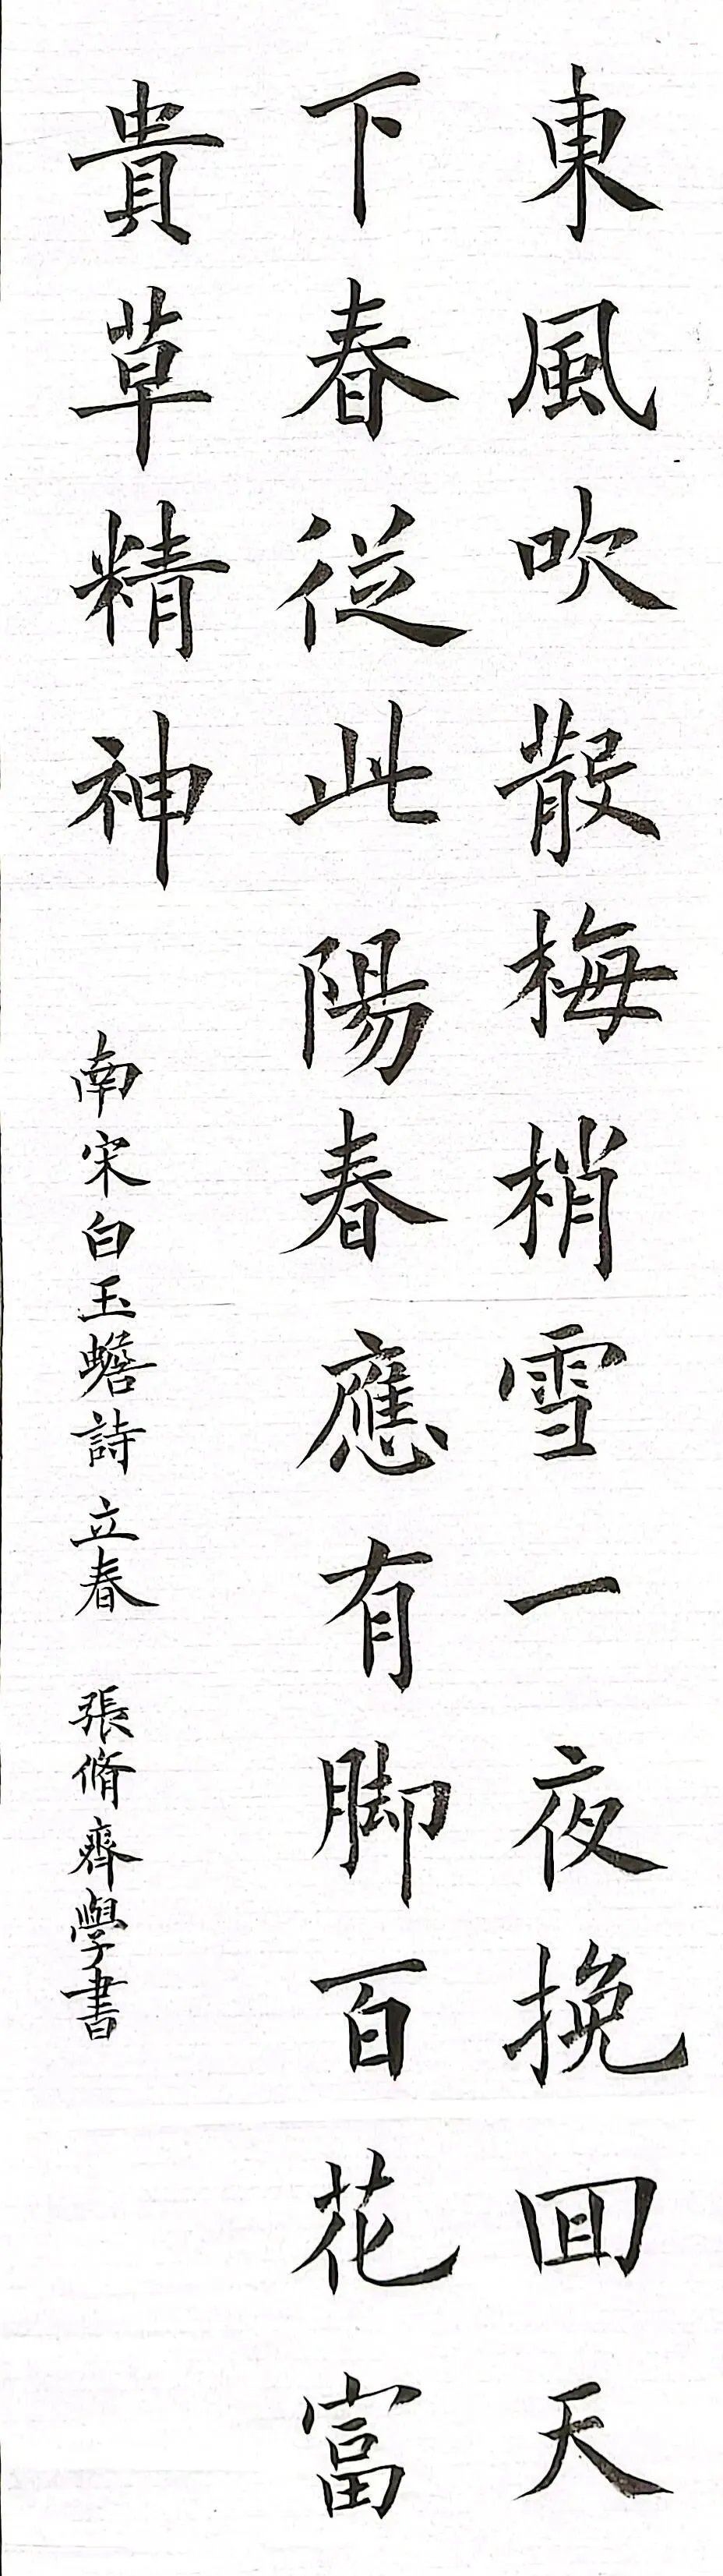 東風吹散梅梢雪一夜挽回天
下春従此陽春應有脚百花富
貴草精神
南宋白玉蟾詩立春 張脩齊學書